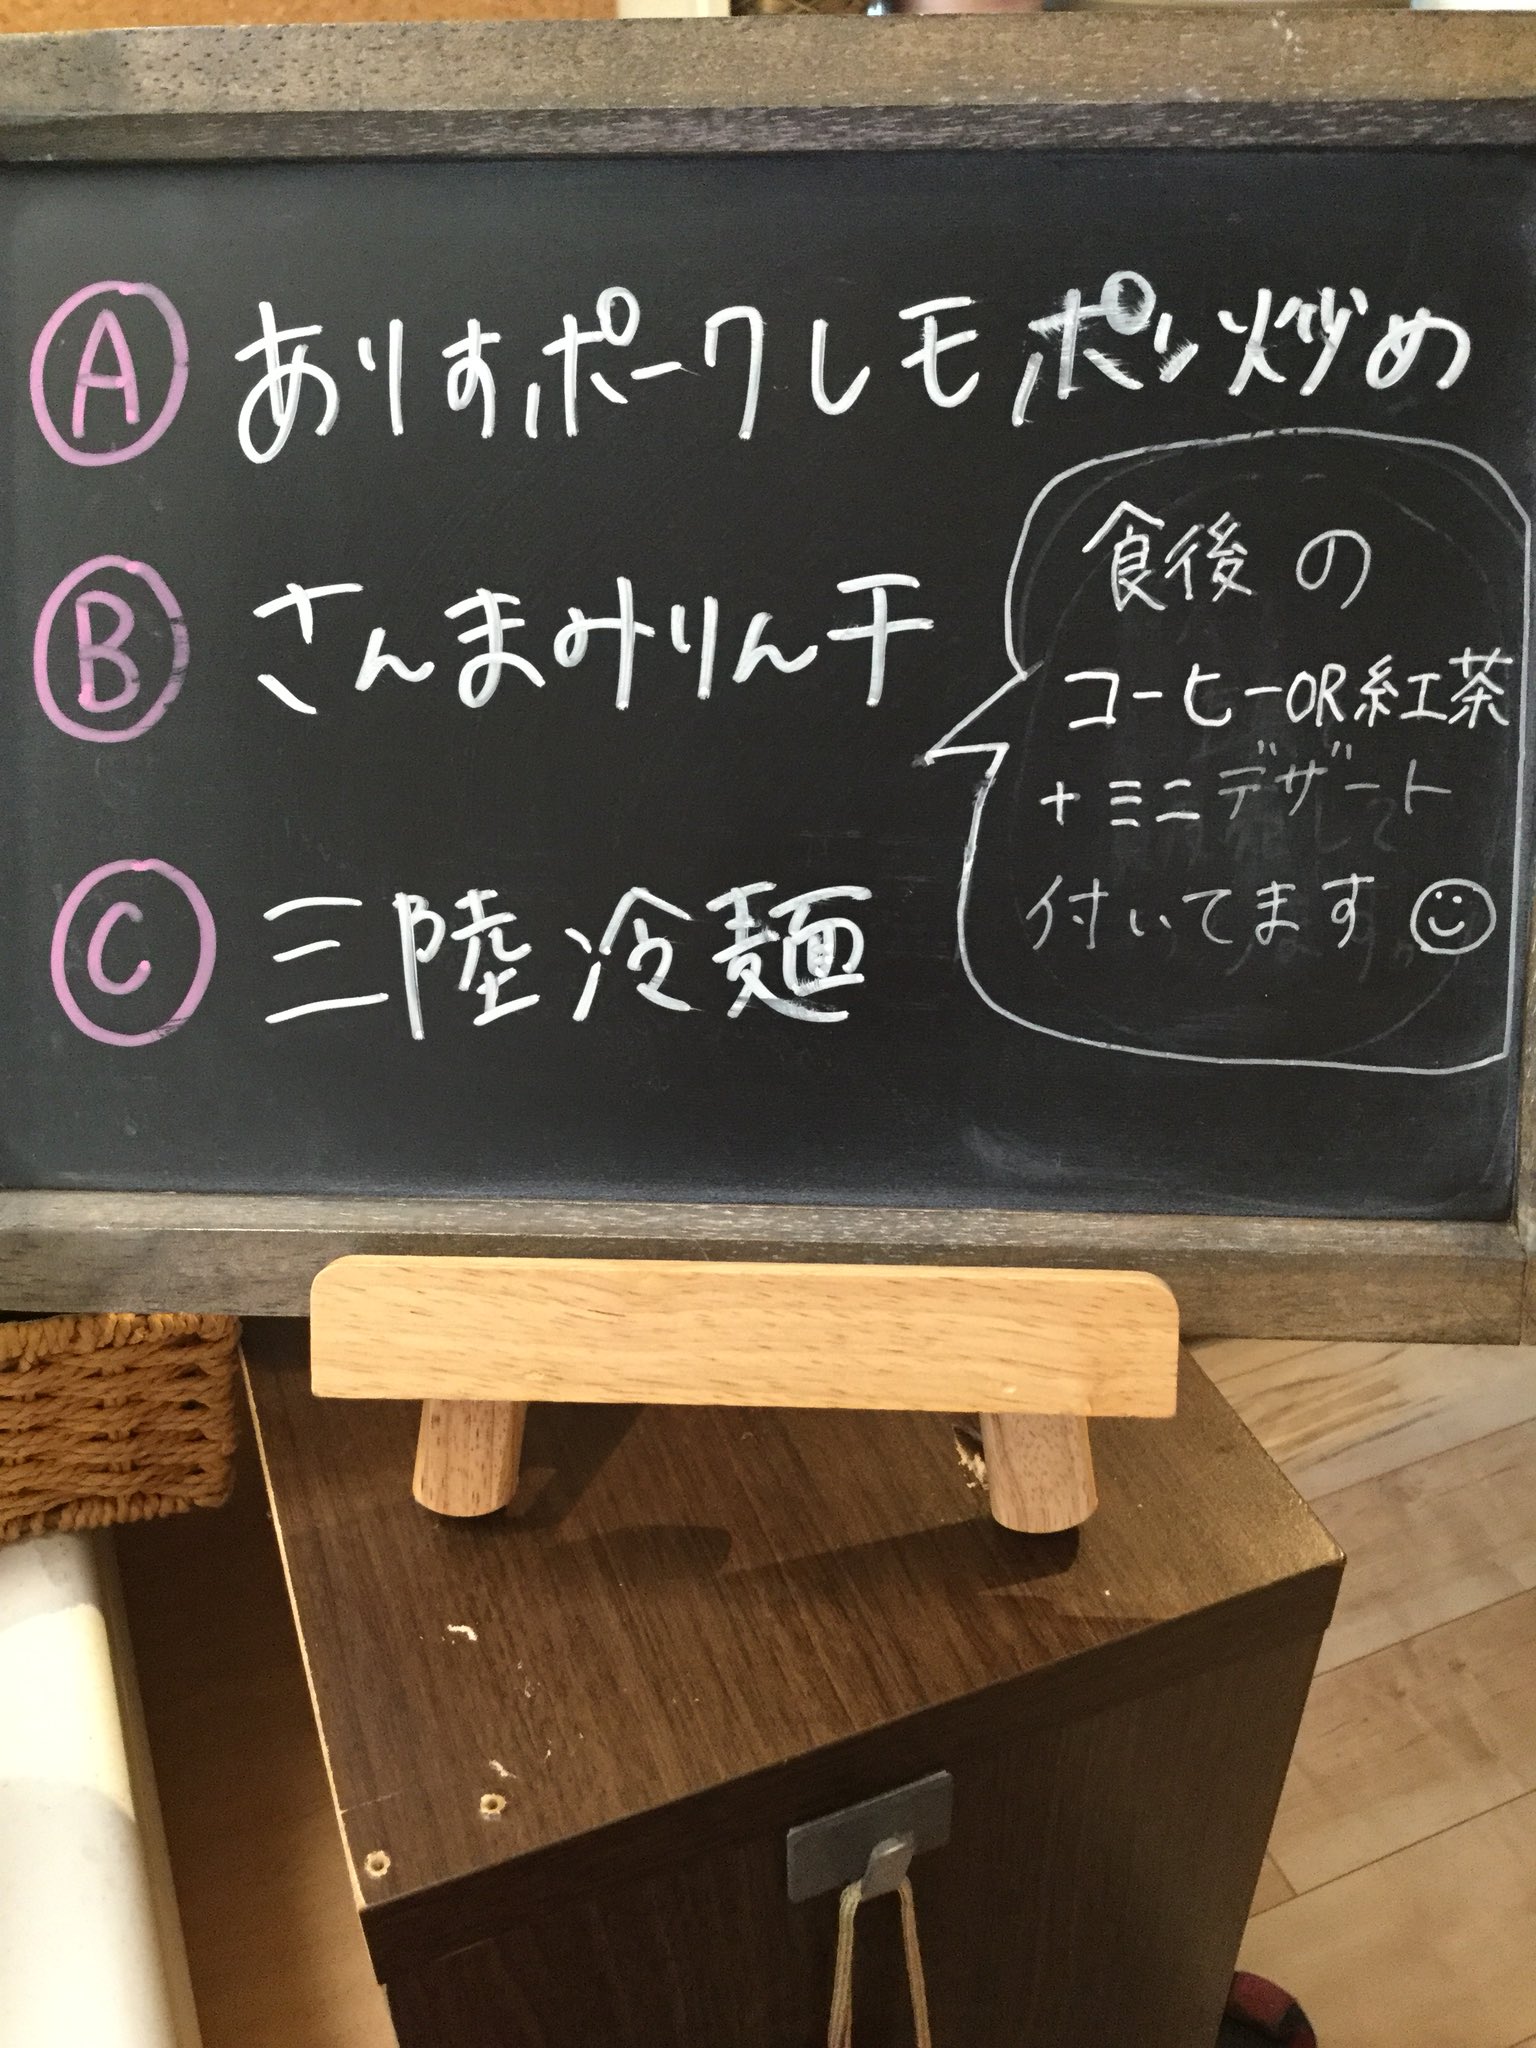 A ありすポークレモンポン炒め
B さんまみりん干
C 三陸冷麺
食後の
コーヒーOR紅茶
+ミニデザート
付いてます